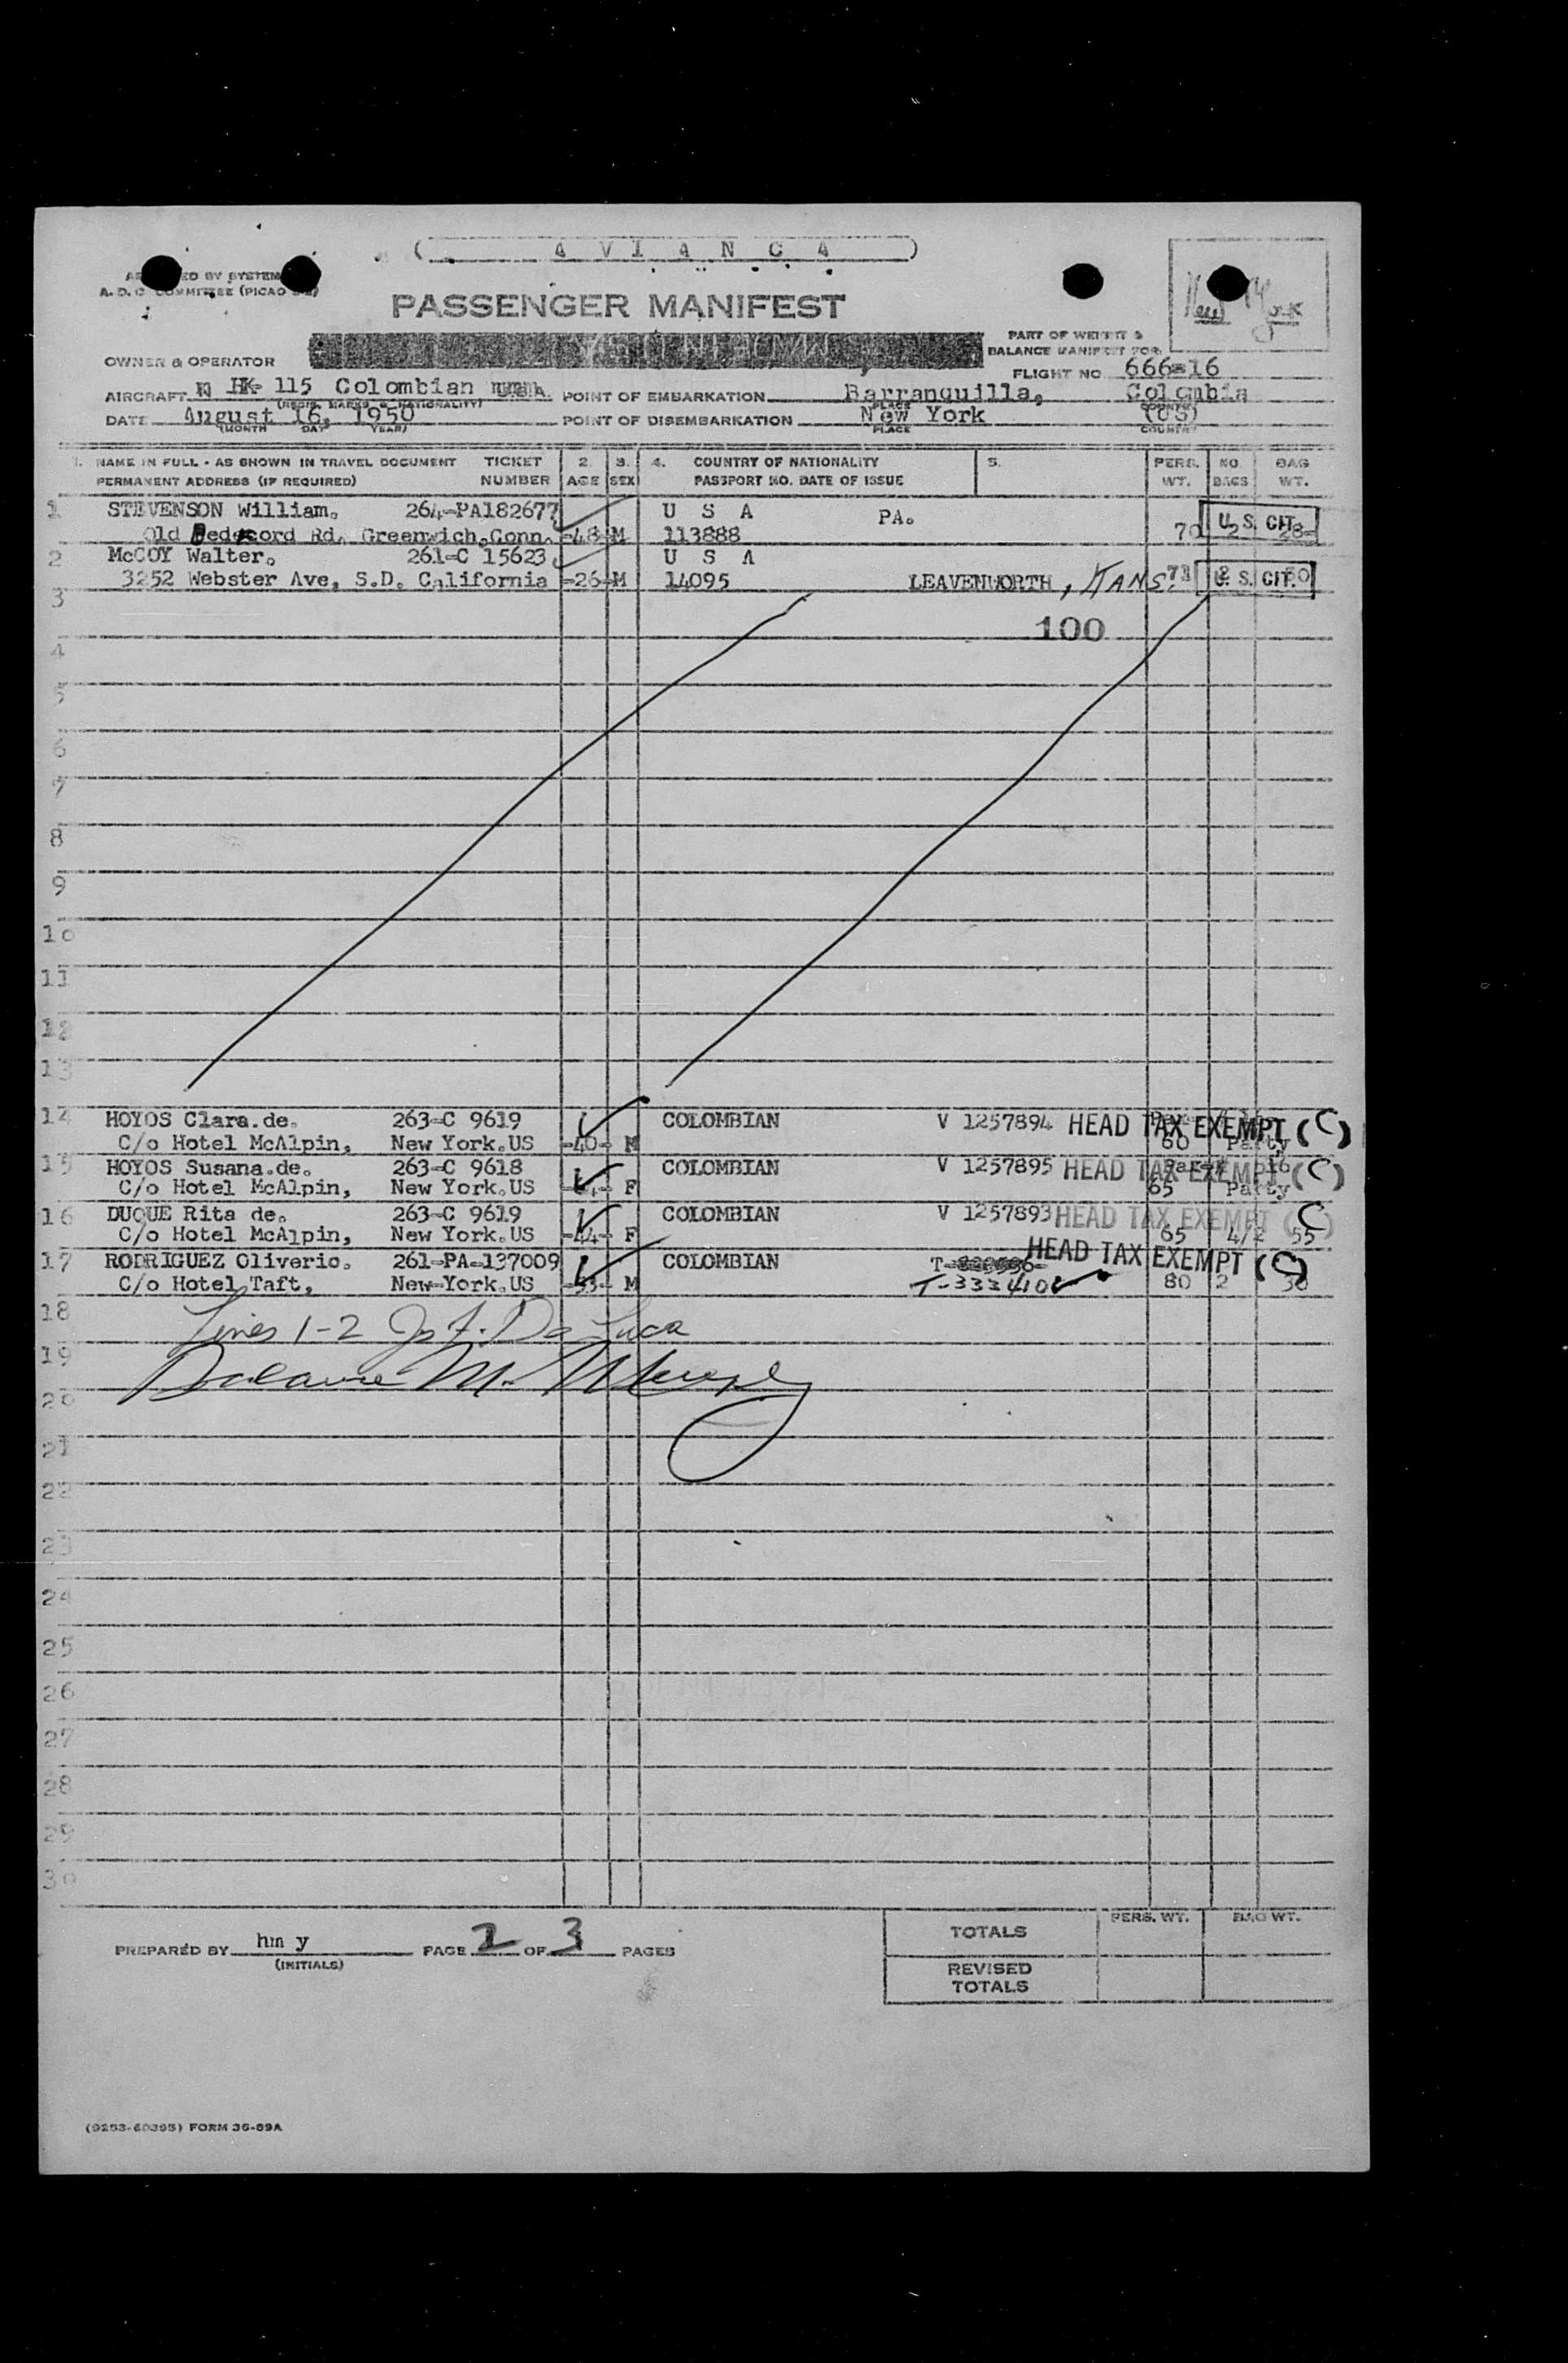 ( A V I A N C A )
A. D. C. COMMITTEE (PICAO
PASSENGER MANIFEST
New York
PART OF WEIGHT &
BALANCE MANIFEST FOR
OWNER & OPERATOR
FLIGHT NO. 666-16
AIRCRAFT HK- 115 Colombian POINT OF EMBARKATION Barranquilla, Colombia
(REGIS. MARKS & NATIONALITY) PLACE COUNTRY
DATE August 16, 1950 POINT OF DISEMBARKATION New York (US)
(MONTH DAY YEAR) PLACE COUNTRY
1. NAME IN FULL - AS SHOWN IN TRAVEL DOCUMENT TICKET 2. 3. 4. COUNTRY OF NATIONALITY 5. PERS. NO. BAG
PERMANENT ADDRESS (IF REQUIRED) NUMBER AGE SEX PASSPORT NO. DATE OF ISSUE WT. BAGS WT.
1 STEVENSON William. 264-PA182677 U S A PA. U. S. CIT.
Old Rd. Greenwich.Conn. -48-M 113888 70 2 28-
2 McCOY Walter. 261-C 15623 U S A
3252 Webster Ave, S.D. California -26-M 14095 LEAVENWORTH, KANS. 71 U. S. CIT.
3
100
4
5
6
7
8
9
10
11
12
13
14 HOYOS Clara.de. 263-C 9619 COLOMBIAN V 1257894 HEAD TAX EXEMPT (C)
C/o Hotel McAlpin, New York.US -40- M 60 Party
15 HOYOS Susana.de. 263-C 9618 COLOMBIAN V 1257895 HEAD TAX EXEMPT (C)
C/o Hotel McAlpin, New York.US F 65 Party
16 DUQUE Rita de. 263-C 9619 COLOMBIAN V 1257893 HEAD TAX EXEMPT (C)
C/o Hotel McAlpin, New York.US -44- F 65 4/2 55
17 RODRIGUEZ Oliverio. 261-PA-137009 COLOMBIAN HEAD TAX EXEMPT (C)
C/o Hotel Taft, New-York.US -53- M T-333410 80 2 30
18 Lines 1-2 De Luca
19
20
21
22
23
24
25
26
27
28
29
30
PERS. WT. BAG WT.
TOTALS
PREPARED BY hm y PAGE 2 OF 3 PAGES
(INITIALS)
REVISED
TOTALS
(9253-60395) FORM 36-89A